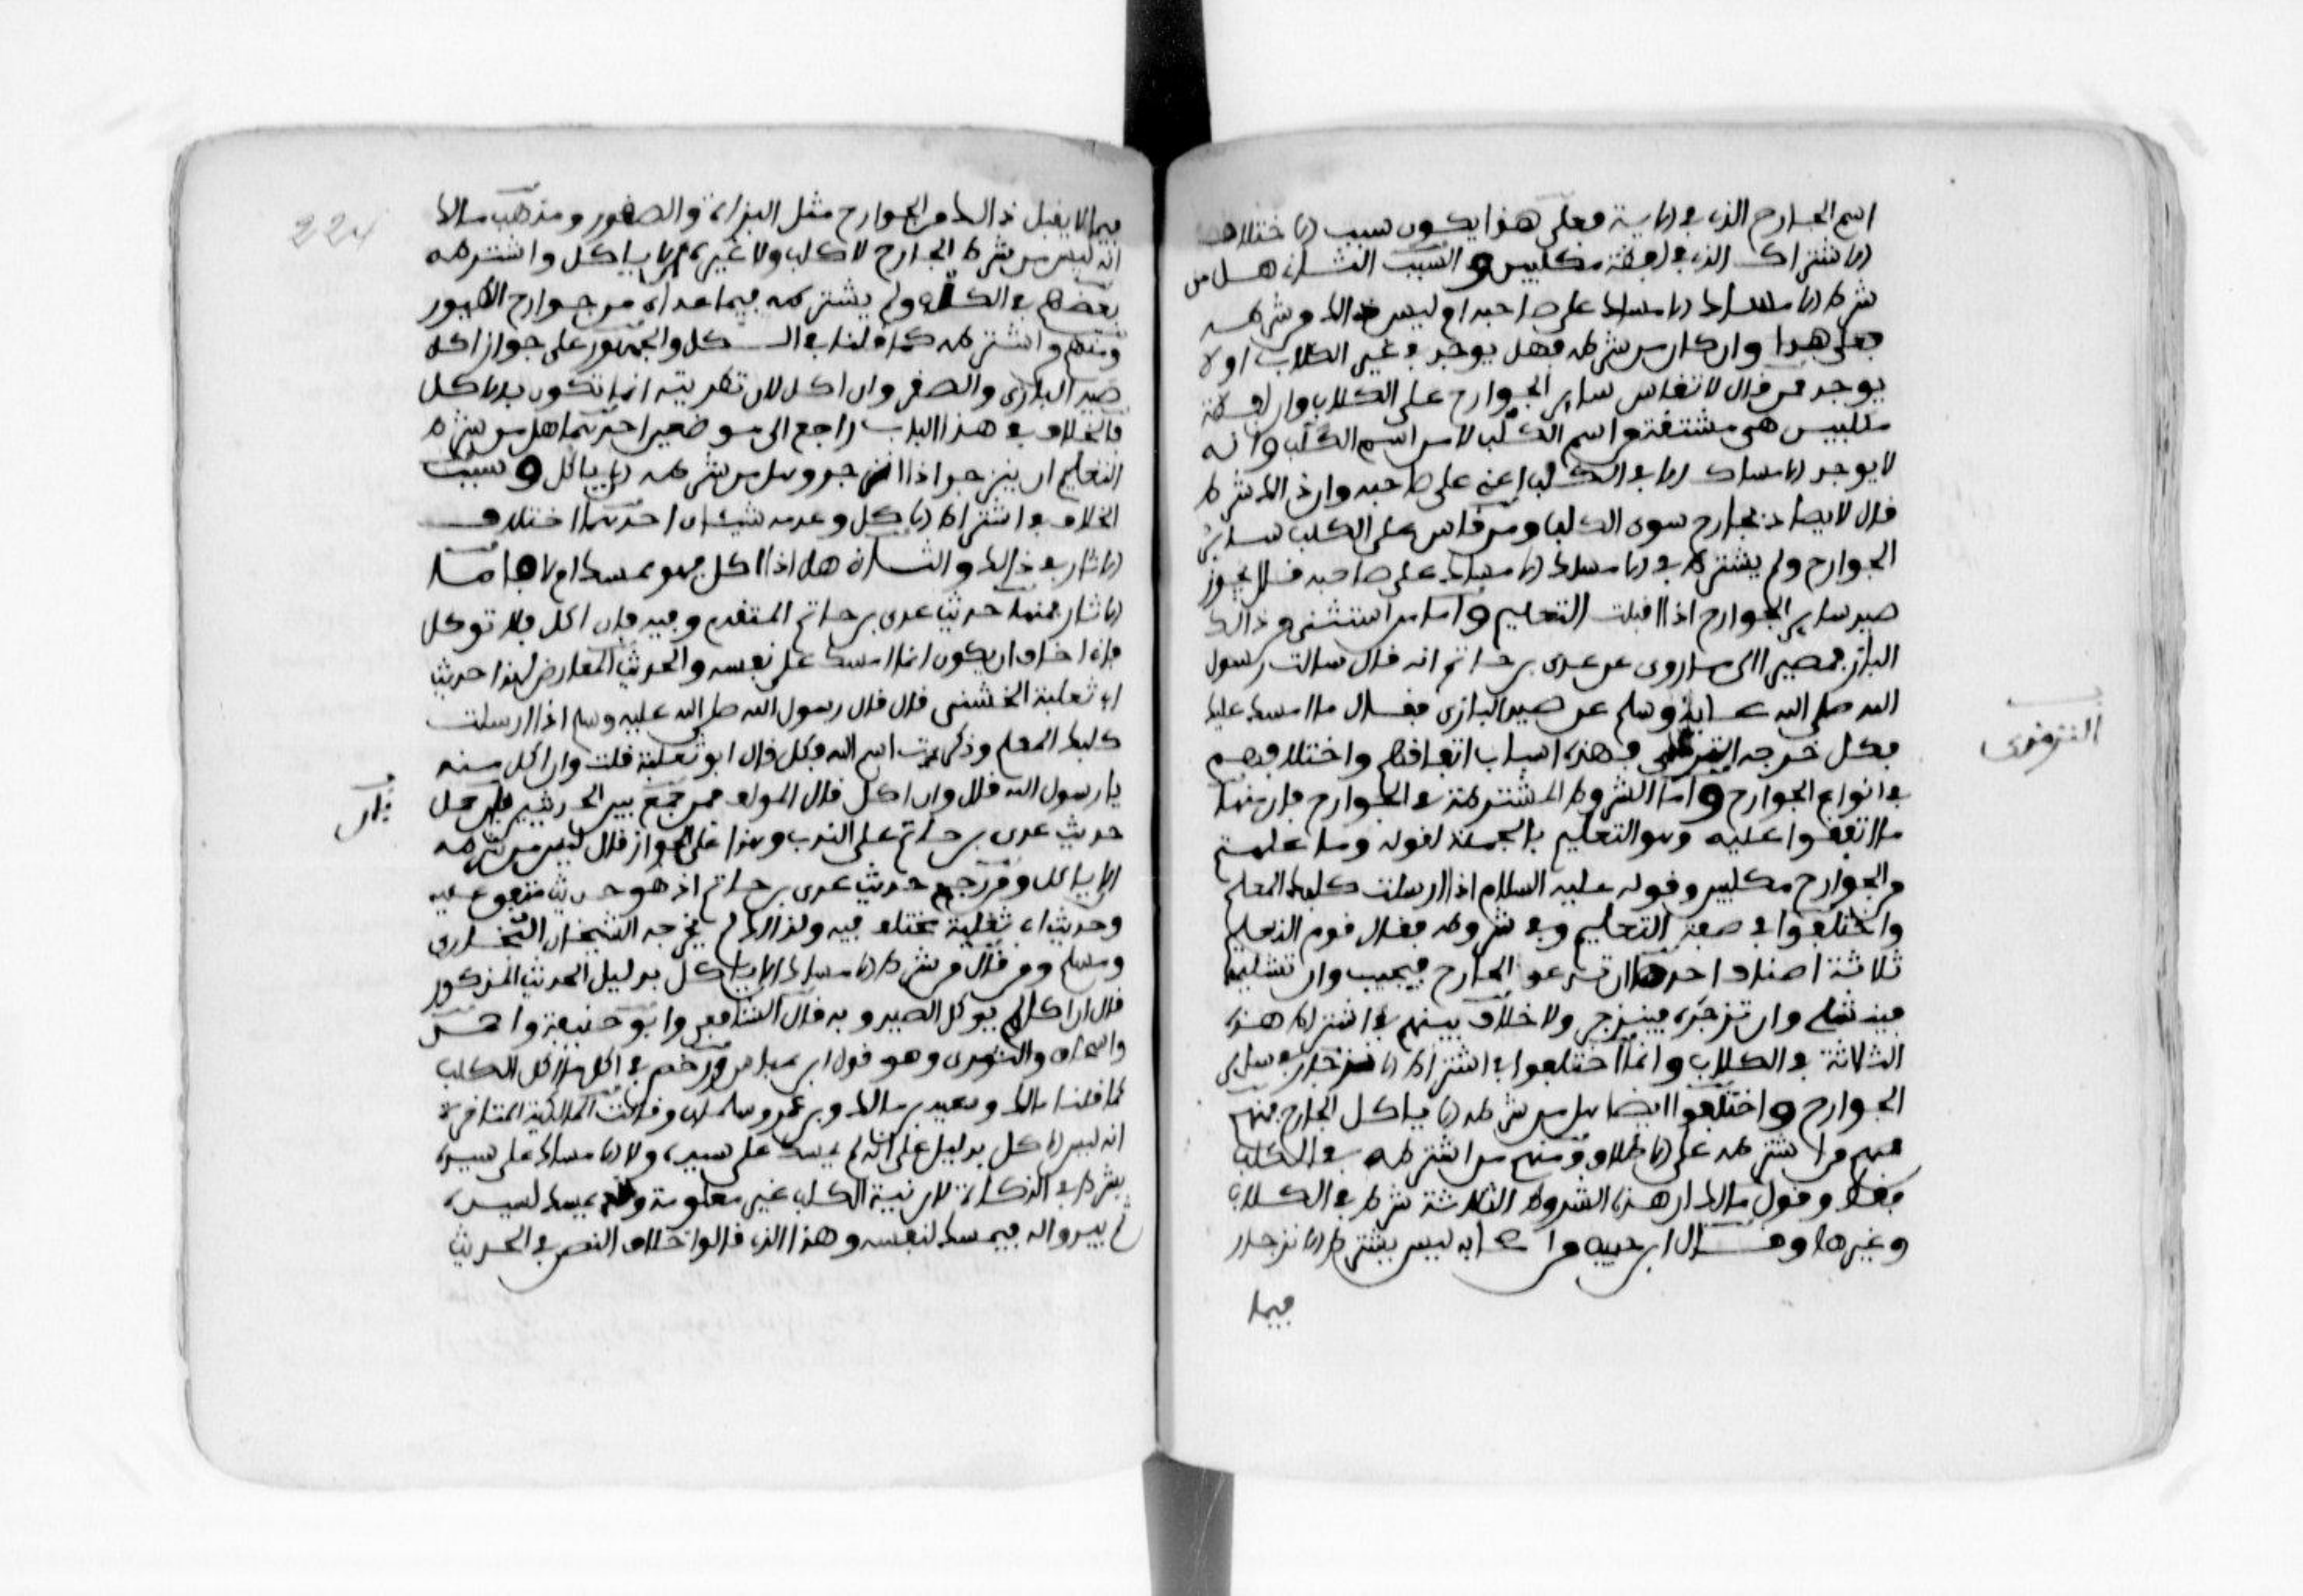 اسم الجارح الذي في الاية فعلى هذا يكون سبب الاختلاف
الاشتراك الذي في لفظة مكلبين والسبب الثاني هل من
شرط الامساك الامساك على صاحبه ام ليس ذالك من شرطه
فعلى هذا وان كان من شرطه فهل يوجد في غير الكلاب او لا
يوجد فمن قال لا تقاس ساير الجوارح على الكلاب وان لفظة
مكلبين هي مشتقة من اسم الكلب لا من اسم الكلب وانه
لا يوجد الامساك الا في الكلب اعني على صاحبه وان ذالك شرط
قال لا يصاد بجارح سوى الكلب ومن قاس على الكلب ساير
الجوارح ولم يشترط في الامساك الامساك على صاحبه قال يجوز
صيد ساير الجوارح اذا قبلت التعليم واما من استثنى من ذالك
الباز فمصيرا الى ما روى عن عدي بن حاتم انه قال سالت رسول
الله صلى الله عليه وسلم عن صيد البازي فقال ما امسك عليك
فكل خرجه الترمذي فهذه اسباب اتفاقهم واختلافهم
في انواع الجوارح واما الشروط المشترطة في الجوارح فان منها
ما اتفقوا عليه وهو التعليم بالجملة لقوله وما علمتم
من الجوارح مكلبين وقوله عليه السلام اذا ارسلت كلبك المعلم
واختلفوا في صفة التعليم وفي شروطه فقال قوم التعليم
ثلاثة اصناف احدها ان تدعو الجارح فيجيب وان تشليه
فينشلي وان تزجره فينزجر ولا خلاف بينهم في اشتراط هذه
الثلاثة في الكلاب وانما اختلفوا في اشتراط الانزجار في ساير
الجوارح واختلفوا ايضا هل من شرطه الا ياكل الجارح منهم
فمنهم من اشترطه على الاطلاق ومنهم من اشترطه في الكلب
فقط وقول مالك ان هذه الشروط الثلاثة شرط في الكلاب
وغيرها وقال ابن حبيب من اصحابه ليس يشترط الانزجار
فيما
الترمذي
224
فيما لا يقبل ذالك من الجوارح مثل البزاة والصقور ومذهب مالك
انه ليس من شرط الجارح لا كلب ولا غيره الا ياكل واشترطه
بعضهم في الكلب ولم يشترطه فيما عداه من جوارح الطيور
ومنهم من اشترطه كما قلنا في الكل والجمهور على جواز اكل
صيد البازي والصقر وان اكل لان تضريته انما تكون بالاكل
فالخلاف في هذا الباب راجع الى موضعين احدهما هل من شرط
التعليم ان ينزجر اذا زجر وهل من شرطه الا ياكل وسبب
الخلاف في اشتراط الاكل وعدمه شيئان احدهما اختلاف
الاثار في ذالك والثاني هل اذا اكل فهو ممسك ام لا فاما
الاثار فمنها حديث عدي بن حاتم المتقدم وفيه فان اكل فلا توكل
فاني اخاف ان يكون انما امسك على نفسه والحديث المعارض لهذا حديث
ابي ثعلبة الخشني قال قال رسول الله صلى الله عليه وسلم اذا ارسلت
كلبك المعلم وذكرت اسم الله فكل قال ابو ثعلبة قلت وان اكل منه
يا رسول الله قال وان اكل قال المؤلف فمن جمع بين الحديثين بان حمل
حديث عدي بن حاتم على الندب وهذا على الجواز قال ليس من شرطه
الا ياكل ومن رجح حديث عدي بن حاتم اذ هو حديث متفق عليه
وحديث ابي ثعلبة مختلف فيه ولذالك لم يخرجه الشيخان البخاري
ومسلم ومن قال من شرط الامساك الا ياكل بدليل الحديث المذكور
قال ان اكل لم يوكل الصيد وبه قال الشافعي وابو حنيفة واحمد
واسحاق والثوري وهو قول ابن عباس ورخص في اكل ما اكل الكلب
كما قلنا مالك وسعيد بن مالك وبن عمر وسلمان وقالت المالكية المتاخرة
انه ليس الاكل بدليل على انه لم يمسك على سيده ولا الامساك على سيده
بشرط في الذكاة لان نية الكلب غير معلومة وقد يمسك لسيده
ثم يبدو له فيمسك لنفسه وهذا الذي قالوا خلاف النص في الحديث
بان